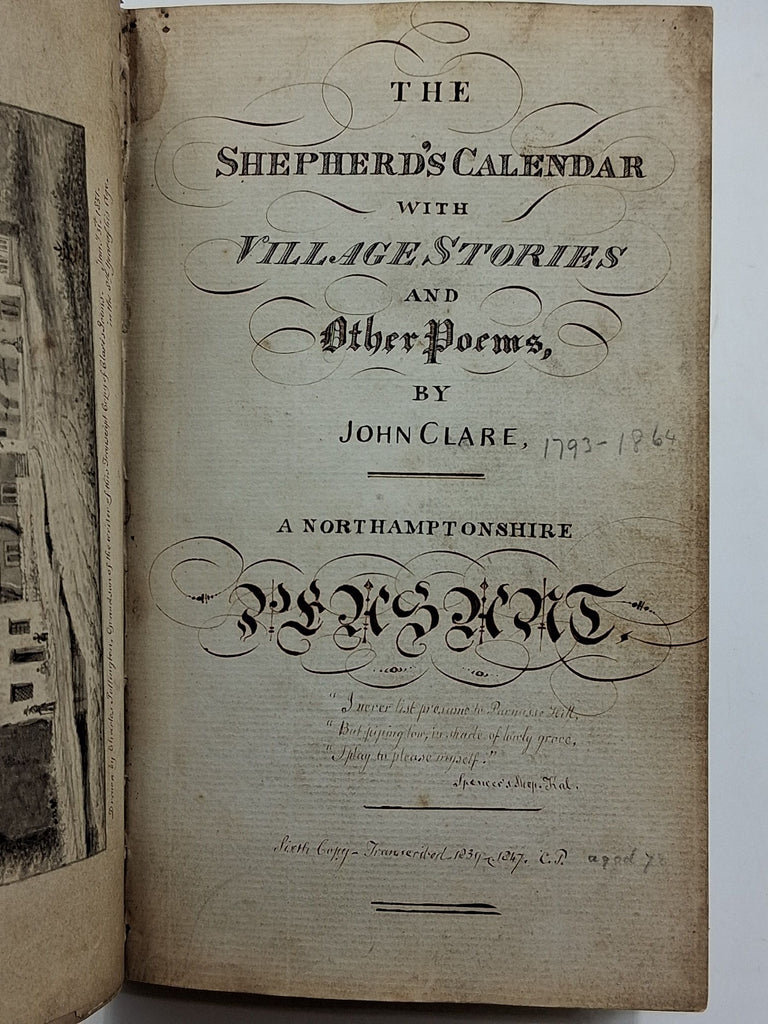 THE
SHEPHERD'S CALENDAR
WITH
VILLAGE STORIES
AND
Other Poems,
BY
JOHN CLARE, 1793-1864
A NORTHAMPTONSHIRE
PEASANT.
"I never list presume to Parnasse Hill,
"But piping low, in shade of lowly grove,
"I play to please myself."
Spencer's Shep. Kal.
Sixth Copy - Transcribed 1839 1847. C.P. aged
Drawn by Charles